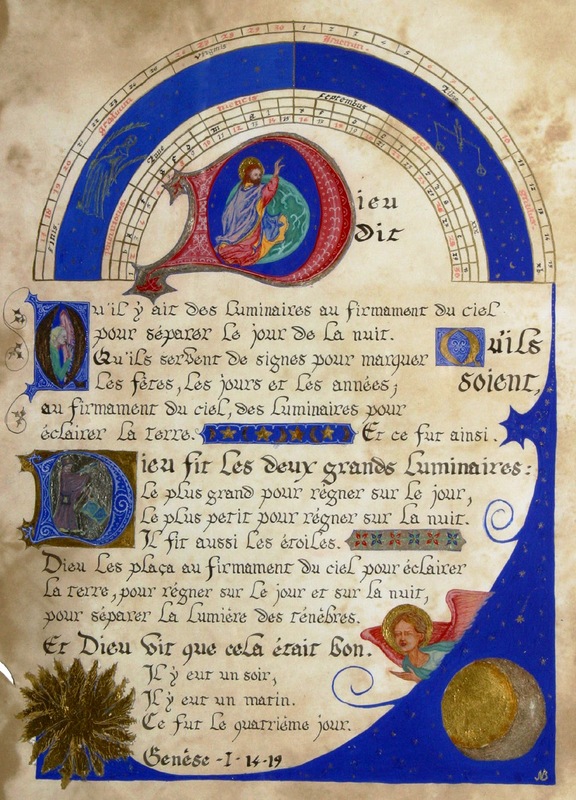 Virginis
Dieu
dit
Qu'il y ait des Luminaires au firmament du ciel
pour séparer Le jour de La nuit.
Qu'ils servent de signes pour marquer
Les fêtes, Les jours et Les années;
Qu'ils
soient,
au firmament du ciel, des Luminaires pour
éclairer La terre. Et ce fut ainsi.
Dieu fit Les deux grands Luminaires:
Le plus grand pour régner sur Le jour,
Le plus petit pour régner sur La nuit.
Il fit aussi Les étoiles.
Dieu Les plaça au firmament du ciel pour éclairer
La terre, pour régner sur Le jour et sur La nuit,
pour séparer La Lumière des ténèbres.
Et Dieu vit que cela était bon.
Il y eut un soir,
Il y eut un matin.
Ce fut Le quatrième jour.
Genèse - I - 14-19
NB